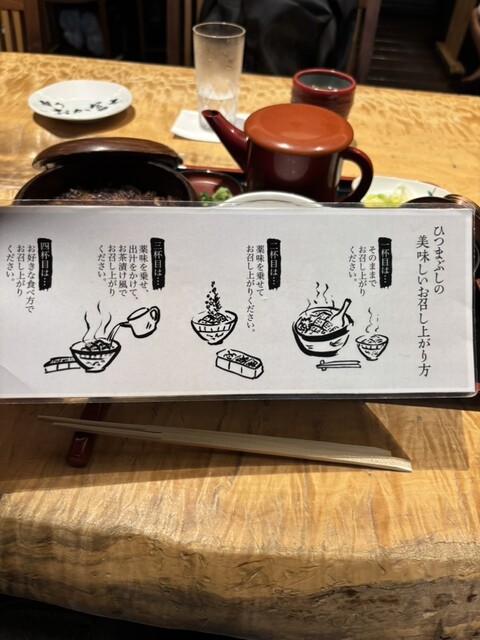 ひつまぶしの
美味しいお召し上がり方
一杯目は…
そのままで
お召し上がり
ください。
二杯目は…
薬味を乗せて
お召し上がりください。
三杯目は…
薬味を乗せ、
出汁をかけて、
お茶漬け風で
お召し上がり
ください。
四杯目は…
お好きな食べ方で
お召し上がり
ください。